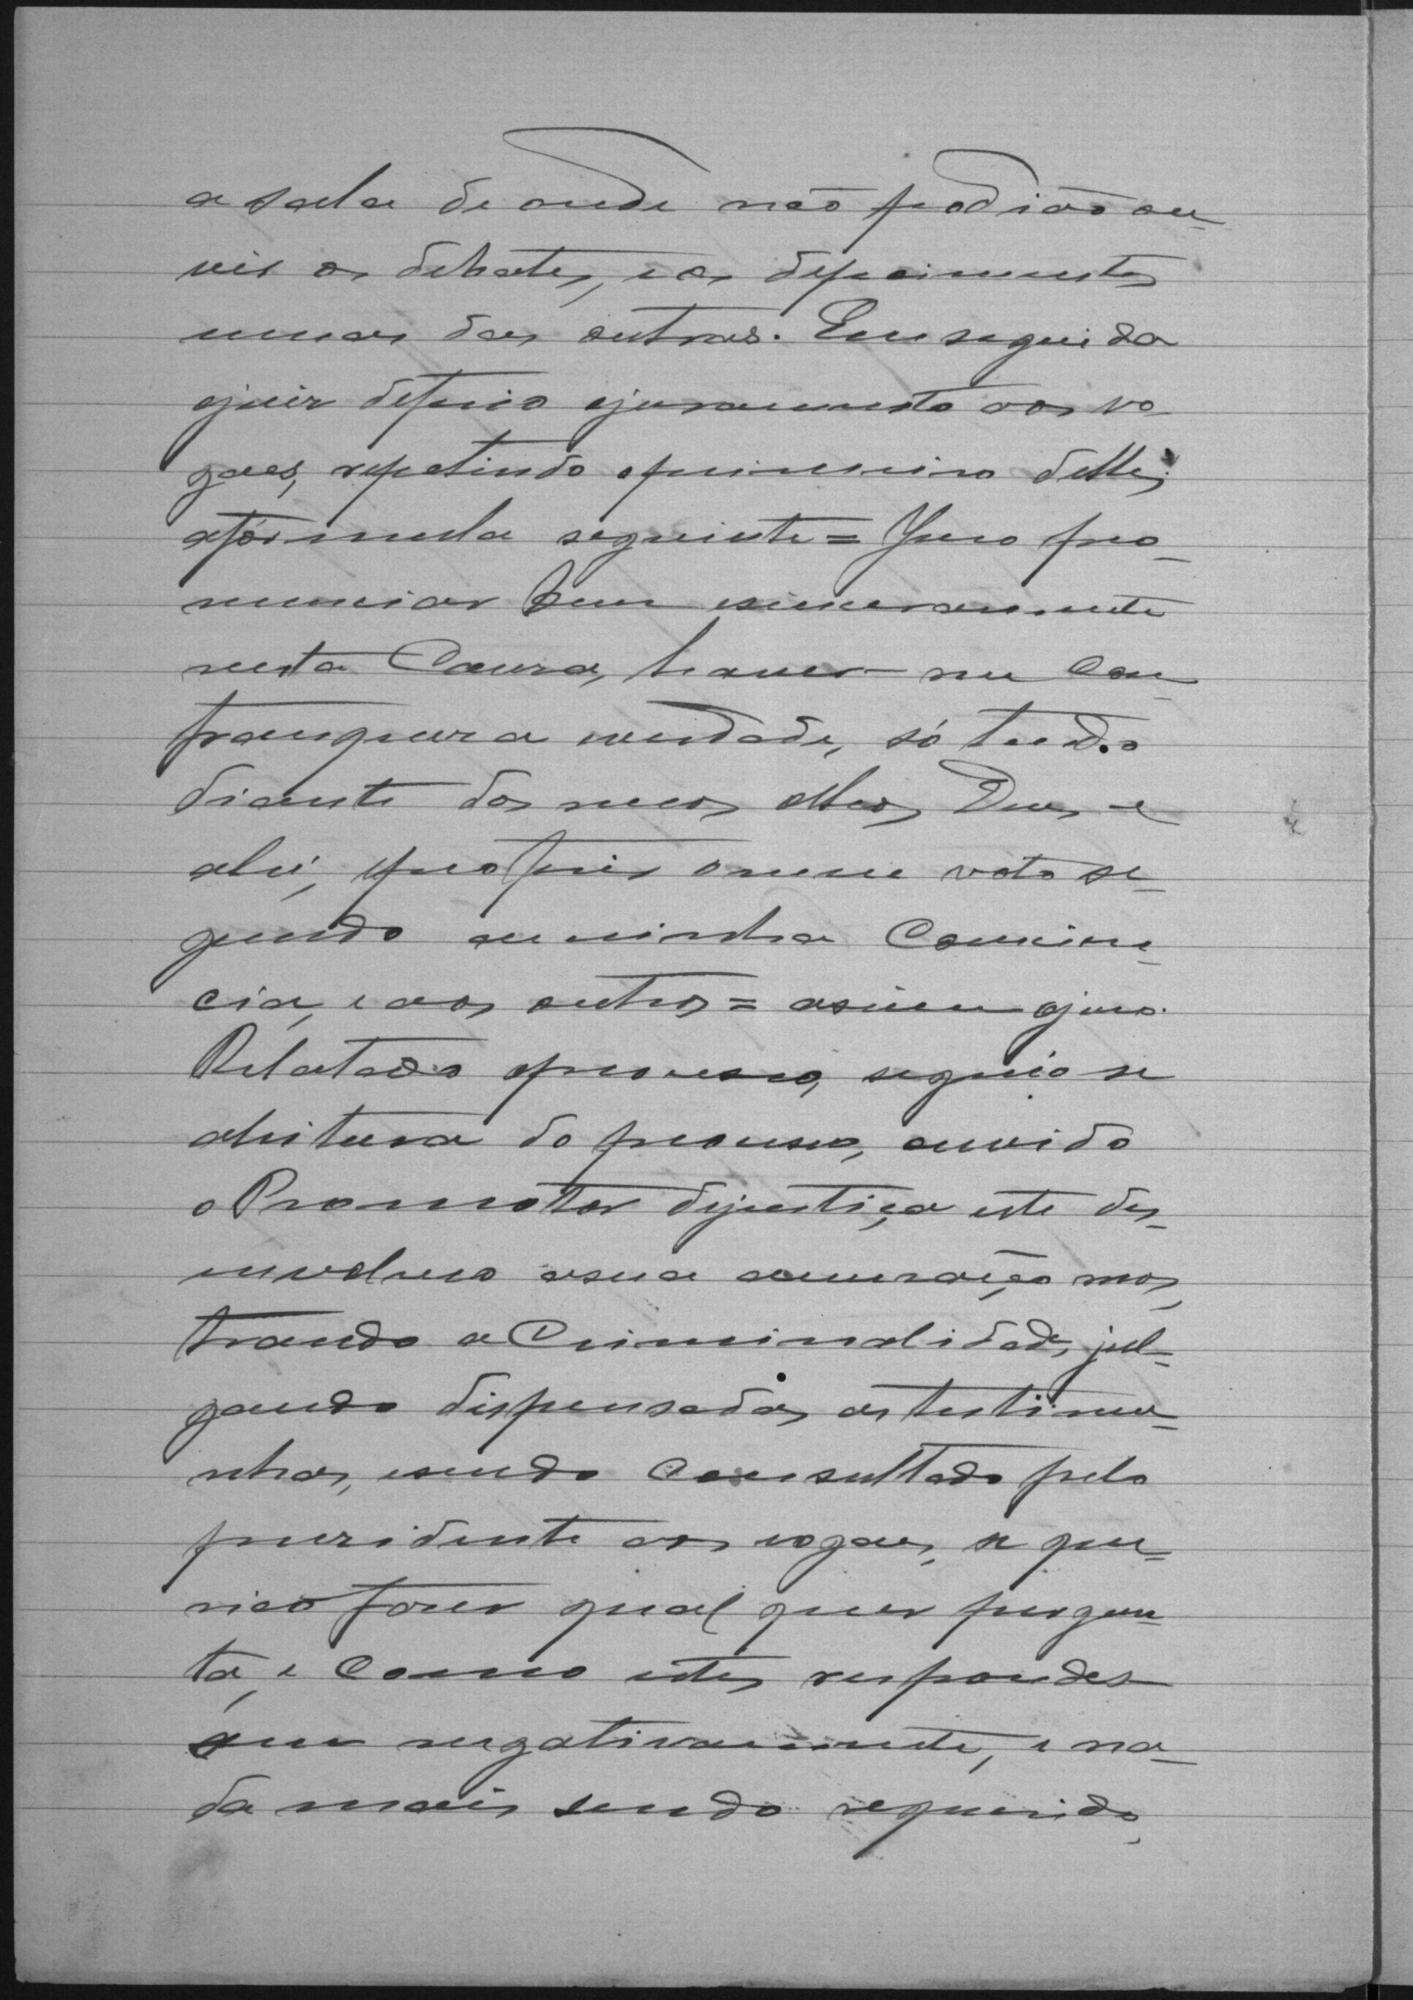 a sala de onde não podião ou-
vir os debates, e os depoimentos
umas das outras. Em seguida
ojuiz deferio ojuramento aos vo
gaes, repetindo oprimeiro delles
afórmula seguinte = Juro pro-
nunciar bem esinceramente
nesta Causa, haver-me Com
franquesa everdade, só tendo
diante dos meos olhos Deus e
alei, eproferir omeu voto se-
gundo aminha Conscien-
cia, e aos outros = assim ojuro.
Relatado oprocesso, seguio se
aleitura do processo, ouvido
o Promotor dejustiça este des-
envolveo asua accusação mos
trando a Criminalidade, jul-
gando dispensadas as testimu-
nhas, esendo Consultado pelo
presidente aos vogaes, se que-
rião fazer qual quer pergun-
ta, e Como estes respondes
sem negativamente, e na-
da mais sendo requerido,